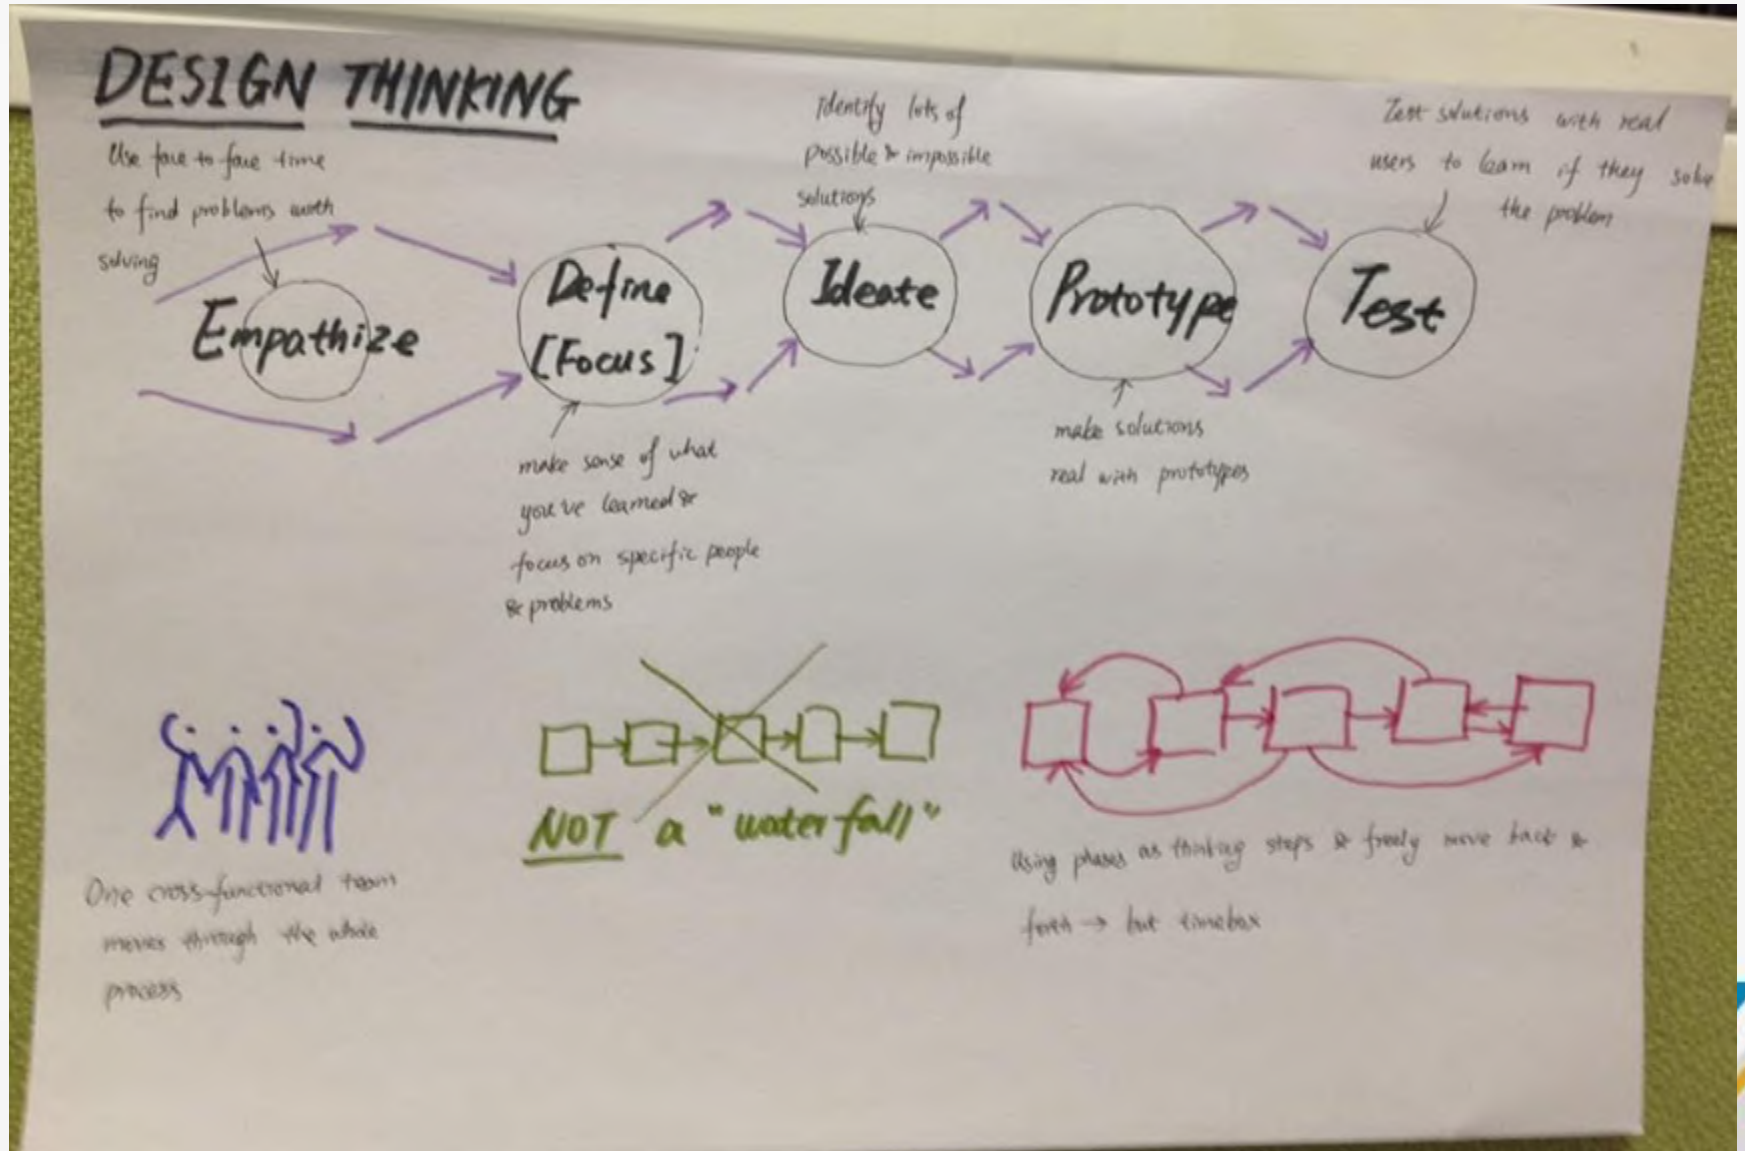 DESIGN THINKING
Use face to face time
to find problems worth
solving
Empathize
Define
[Focus]
make sense of what
you've learned &
focus on specific people
& problems
Identify lots of
possible & impossible
solutions
Ideate
Prototype
make solutions
real with prototypes
Test solutions with real
users to learn if they solve
the problem
Test
One cross-functional team
moves through the whole
process
NOT a "waterfall"
Using phases as thinking steps & freely move back &
forth → but timebox